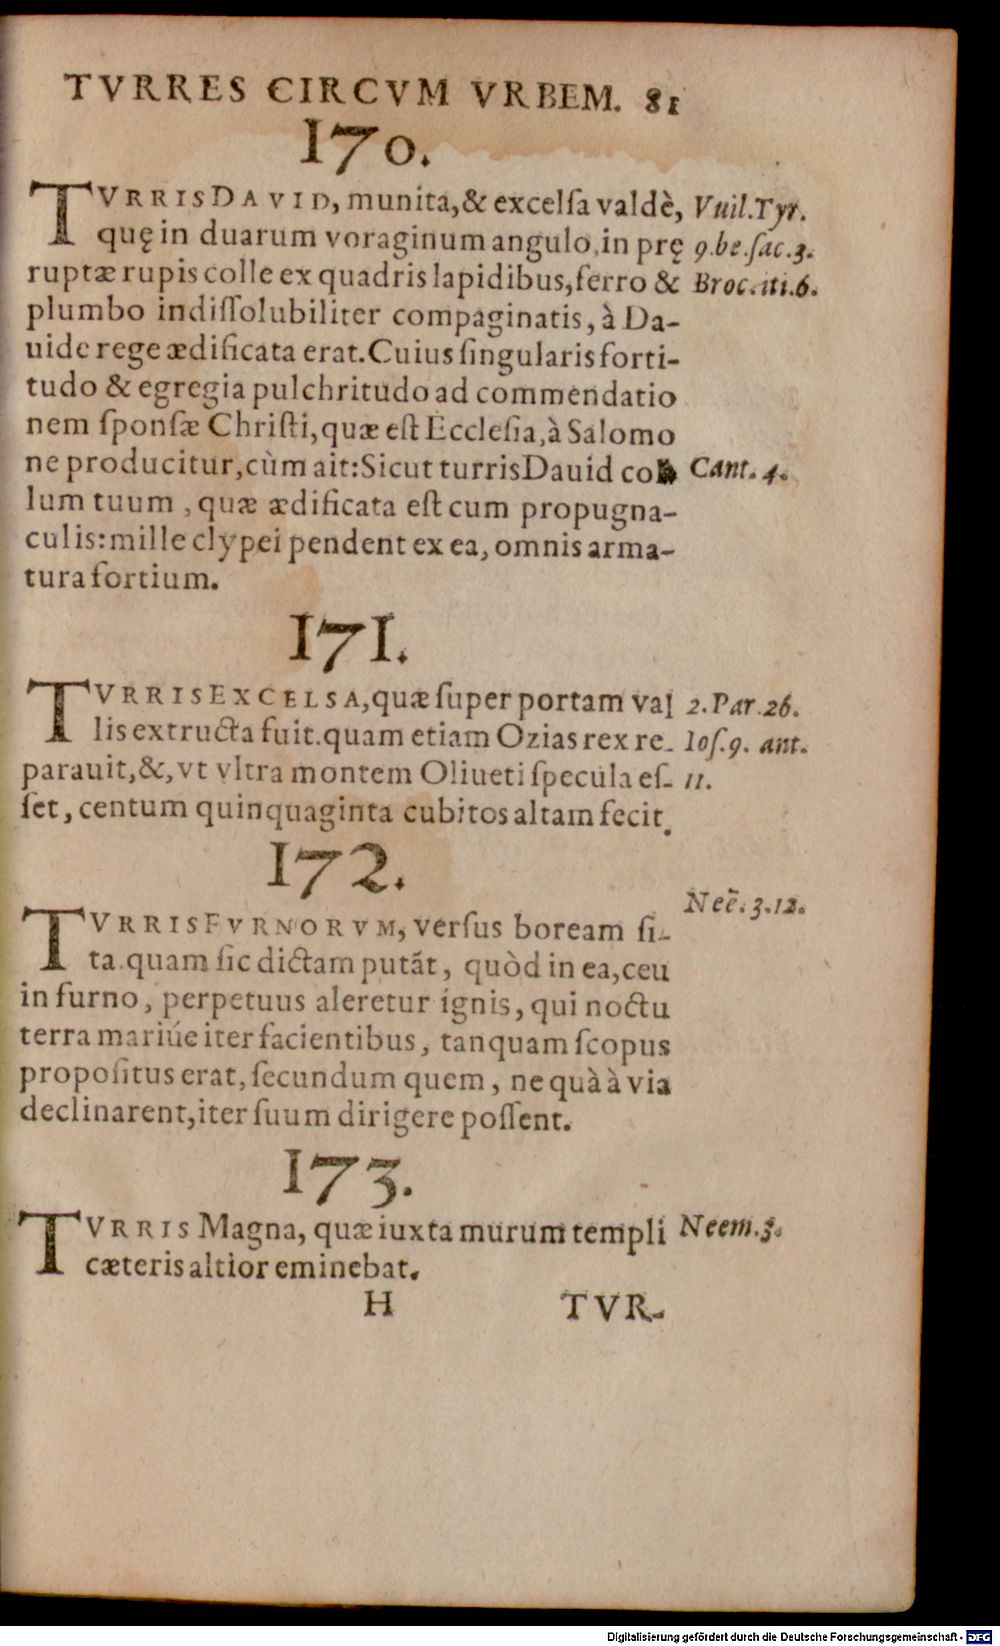 TVRRES CIRCVM VRBEM. 81
170.
TVRRIS DAVID, munita, & excelſa valdè, Vuil. Tyr.
quę in duarum voraginum angulo, in prę 9. be. ſac. 3.
ruptæ rupis colle ex quadris lapidibus, ferro & Broc. iti. 6.
plumbo indiſſolubiliter compaginatis, à Da-
uide rege ædificata erat. Cuius ſingularis forti-
tudo & egregia pulchritudo ad commendatio
nem ſponſæ Chriſti, quæ eſt Eccleſia, à Salomo
ne producitur, cùm ait: Sicut turris Dauid col Cant. 4.
lum tuum, quæ ædificata eſt cum propugna-
culis: mille clypei pendent ex ea, omnis arma-
tura fortium.
171.
TVRRIS EXCELSA, quæ ſuper portam val 2. Par. 26.
lis extructa fuit. quam etiam Ozias rex re- Ioſ. 9. ant.
parauit, &, vt vltra montem Oliueti ſpecula eſ- 11.
ſet, centum quinquaginta cubitos altam fecit.
172.
Neē. 3. 12.
TVRRIS FVRNORVM, verſus boream ſi-
ta. quam ſic dictam putāt, quòd in ea, ceu
in furno, perpetuus aleretur ignis, qui noctu
terra mariúe iter facientibus, tanquam ſcopus
propoſitus erat, ſecundum quem, ne quà à via
declinarent, iter ſuum dirigere poſſent.
173.
TVRRIS Magna, quæ iuxta murum templi Neem. 3.
cæteris altior eminebat.
H TVR-
Digitalisierung gefördert durch die Deutsche Forschungsgemeinschaft - DFG